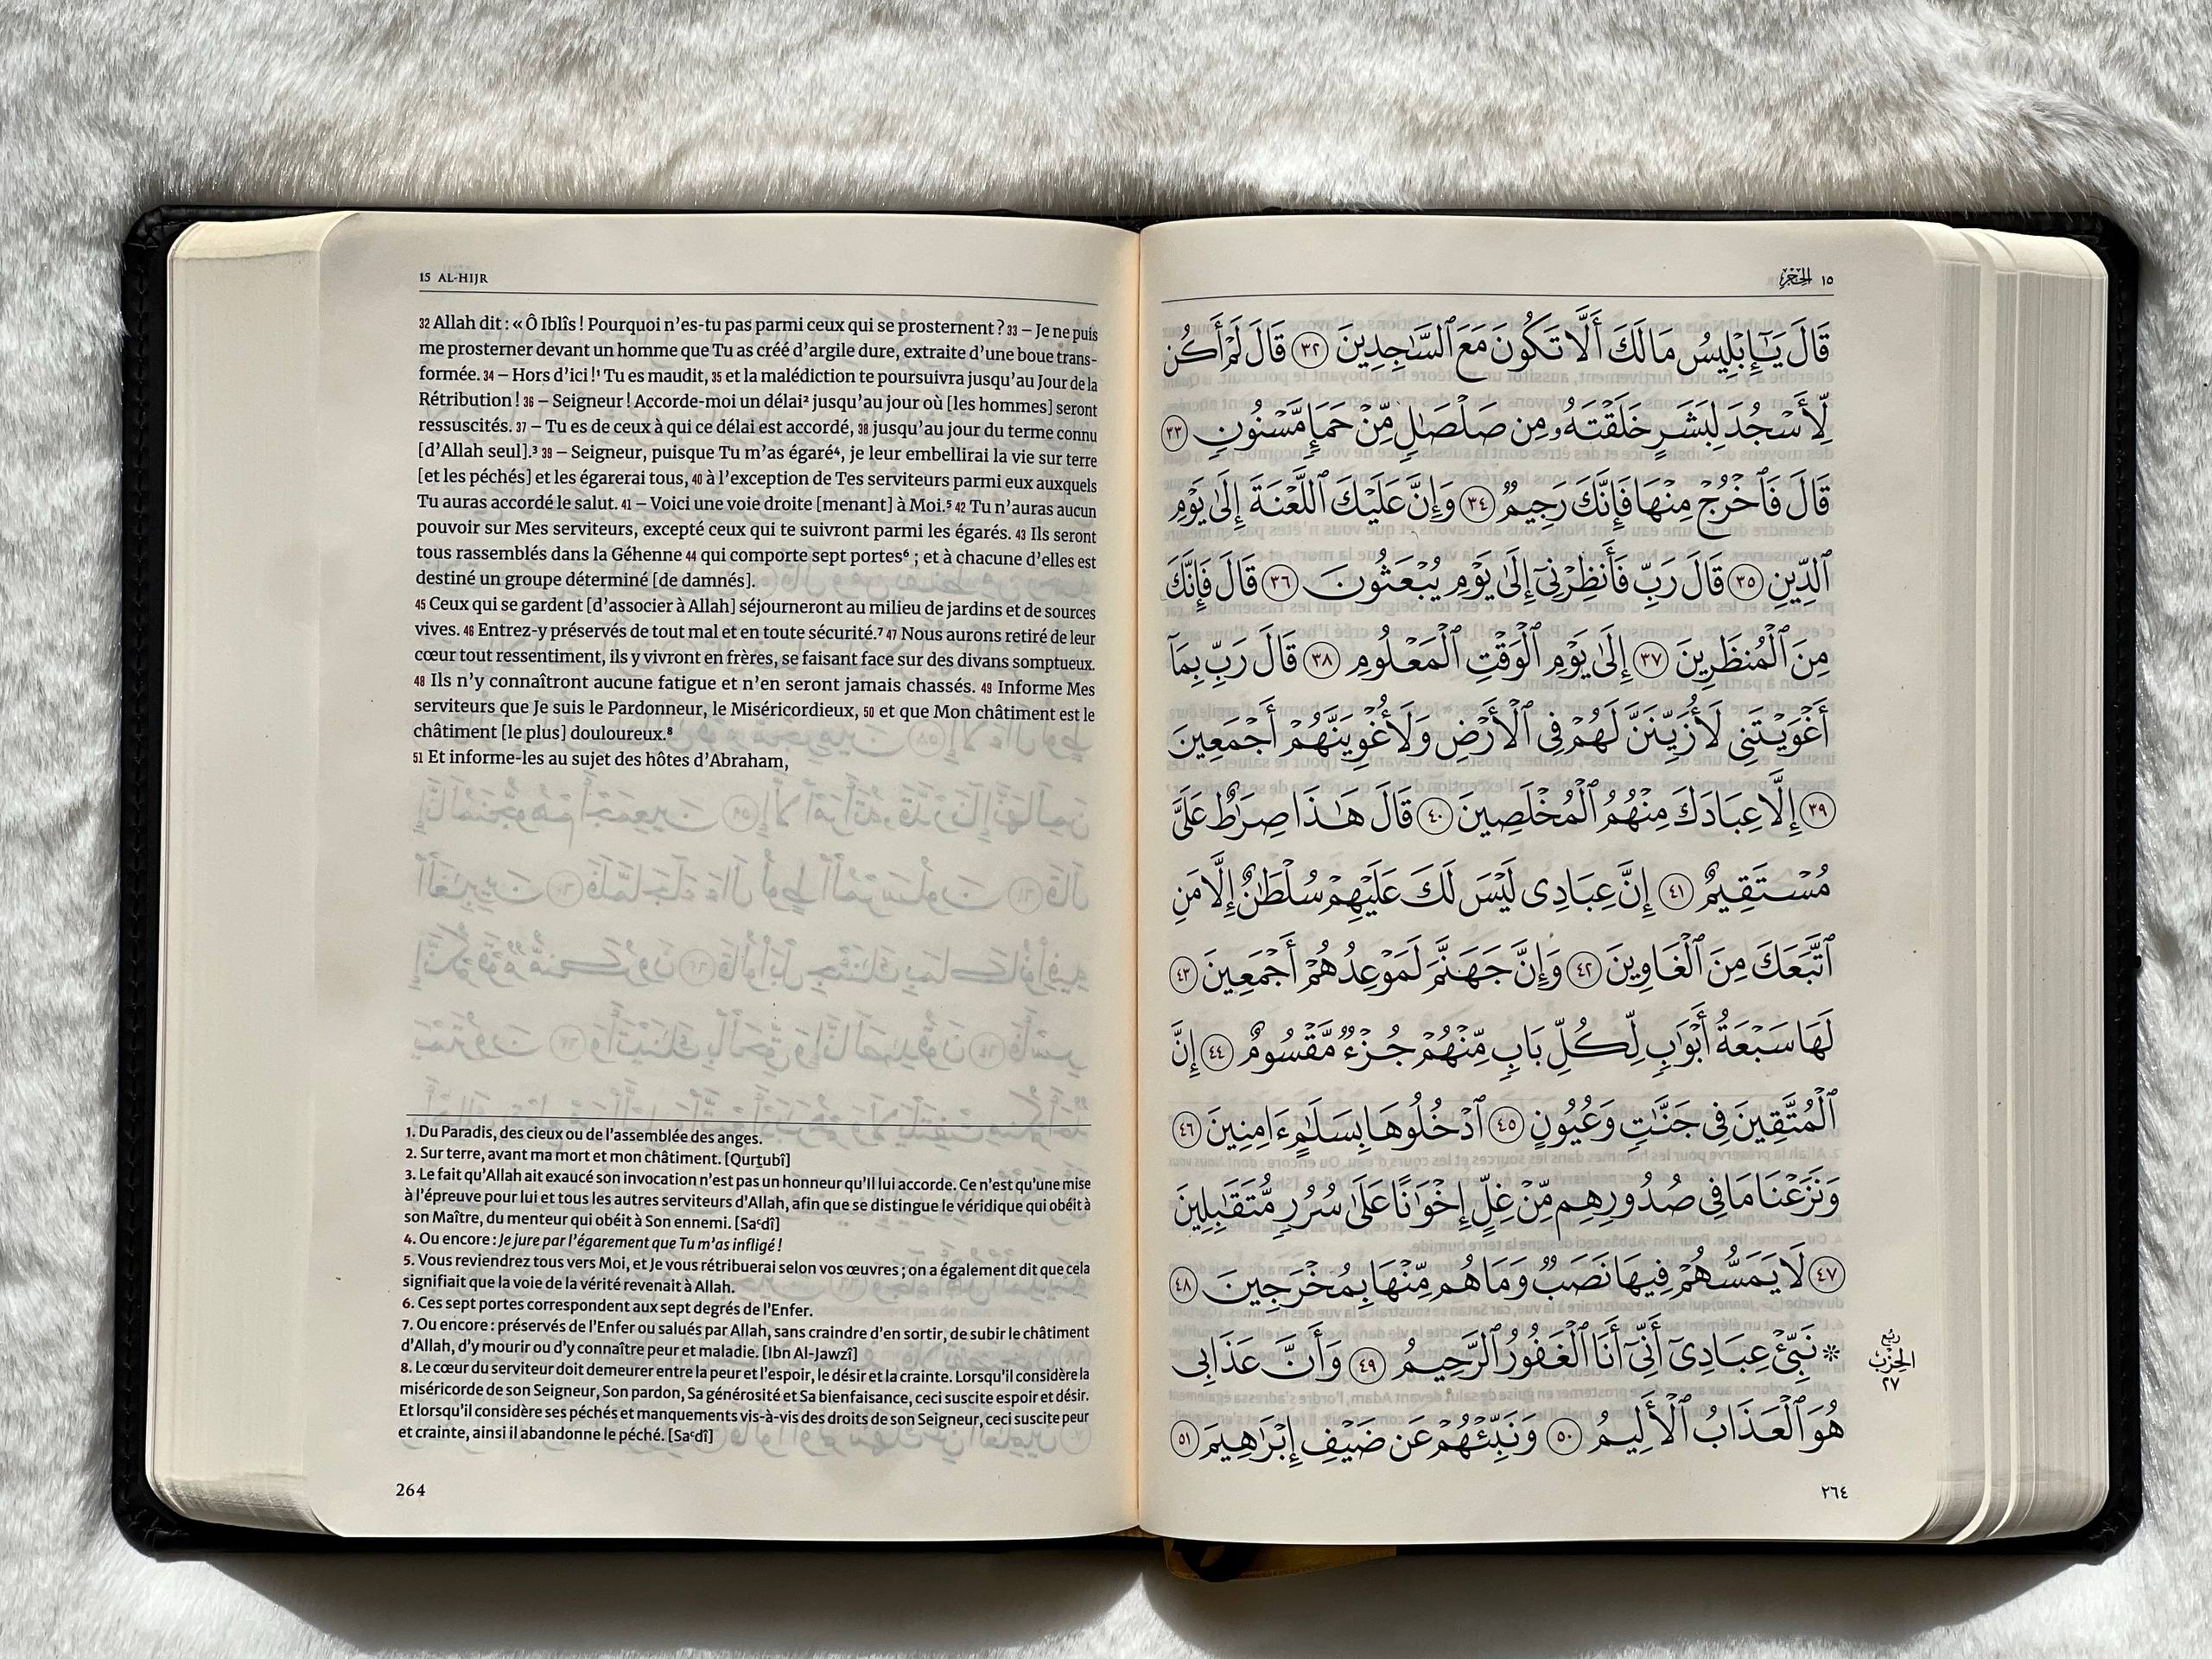 15 AL-HIJR
32 Allah dit : « Ô Iblîs ! Pourquoi n'es-tu pas parmi ceux qui se prosternent ? 33 – Je ne puis
me prosterner devant un homme que Tu as créé d'argile dure, extraite d'une boue trans-
formée. 34 – Hors d'ici !¹ Tu es maudit, 35 et la malédiction te poursuivra jusqu'au Jour de la
Rétribution ! 36 – Seigneur ! Accorde-moi un délai² jusqu'au jour où [les hommes] seront
ressuscités. 37 – Tu es de ceux à qui ce délai est accordé, 38 jusqu'au jour du terme connu
[d'Allah seul].³ 39 – Seigneur, puisque Tu m'as égaré⁴, je leur embellirai la vie sur terre
[et les péchés] et les égarerai tous, 40 à l'exception de Tes serviteurs parmi eux auxquels
Tu auras accordé le salut. 41 – Voici une voie droite [menant] à Moi.⁵ 42 Tu n'auras aucun
pouvoir sur Mes serviteurs, excepté ceux qui te suivront parmi les égarés. 43 Ils seront
tous rassemblés dans la Géhenne 44 qui comporte sept portes⁶ ; et à chacune d'elles est
destiné un groupe déterminé [de damnés].
45 Ceux qui se gardent [d'associer à Allah] séjourneront au milieu de jardins et de sources
vives. 46 Entrez-y préservés de tout mal et en toute sécurité.⁷ 47 Nous aurons retiré de leur
cœur tout ressentiment, ils y vivront en frères, se faisant face sur des divans somptueux.
48 Ils n'y connaîtront aucune fatigue et n'en seront jamais chassés. 49 Informe Mes
serviteurs que Je suis le Pardonneur, le Miséricordieux, 50 et que Mon châtiment est le
châtiment [le plus] douloureux.⁸
51 Et informe-les au sujet des hôtes d'Abraham,
1. Du Paradis, des cieux ou de l'assemblée des anges.
2. Sur terre, avant ma mort et mon châtiment. [Qurṯubî]
3. Le fait qu'Allah ait exaucé son invocation n'est pas un honneur qu'Il lui accorde. Ce n'est qu'une mise
à l'épreuve pour lui et tous les autres serviteurs d'Allah, afin que se distingue le véridique qui obéit à
son Maître, du menteur qui obéit à Son ennemi. [Saᶜdî]
4. Ou encore : Je jure par l'égarement que Tu m'as infligé !
5. Vous reviendrez tous vers Moi, et Je vous rétribuerai selon vos œuvres ; on a également dit que cela
signifiait que la voie de la vérité revenait à Allah.
6. Ces sept portes correspondent aux sept degrés de l'Enfer.
7. Ou encore : préservés de l'Enfer ou salués par Allah, sans craindre d'en sortir, de subir le châtiment
d'Allah, d'y mourir ou d'y connaître peur et maladie. [Ibn Al-Jawzî]
8. Le cœur du serviteur doit demeurer entre la peur et l'espoir, le désir et la crainte. Lorsqu'il considère la
miséricorde de son Seigneur, Son pardon, Sa générosité et Sa bienfaisance, ceci suscite espoir et désir.
Et lorsqu'il considère ses péchés et manquements vis-à-vis des droits de son Seigneur, ceci suscite peur
et crainte, ainsi il abandonne le péché. [Saᶜdî]
264
١٥ الحِجْر
قَالَ يَٰٓإِبْلِيسُ مَا لَكَ أَلَّا تَكُونَ مَعَ ٱلسَّٰجِدِينَ ٣٢ قَالَ لَمْ أَكُن
لِّأَسْجُدَ لِبَشَرٍ خَلَقْتَهُۥ مِن صَلْصَٰلٍ مِّنْ حَمَإٍ مَّسْنُونٍ ٣٣
قَالَ فَٱخْرُجْ مِنْهَا فَإِنَّكَ رَجِيمٌ ٣٤ وَإِنَّ عَلَيْكَ ٱللَّعْنَةَ إِلَىٰ يَوْمِ
ٱلدِّينِ ٣٥ قَالَ رَبِّ فَأَنظِرْنِىٓ إِلَىٰ يَوْمِ يُبْعَثُونَ ٣٦ قَالَ فَإِنَّكَ
مِنَ ٱلْمُنظَرِينَ ٣٧ إِلَىٰ يَوْمِ ٱلْوَقْتِ ٱلْمَعْلُومِ ٣٨ قَالَ رَبِّ بِمَآ
أَغْوَيْتَنِى لَأُزَيِّنَنَّ لَهُمْ فِى ٱلْأَرْضِ وَلَأُغْوِيَنَّهُمْ أَجْمَعِينَ
٣٩ إِلَّا عِبَادَكَ مِنْهُمُ ٱلْمُخْلَصِينَ ٤٠ قَالَ هَٰذَا صِرَٰطٌ عَلَىَّ
مُسْتَقِيمٌ ٤١ إِنَّ عِبَادِى لَيْسَ لَكَ عَلَيْهِمْ سُلْطَٰنٌ إِلَّا مَنِ
ٱتَّبَعَكَ مِنَ ٱلْغَاوِينَ ٤٢ وَإِنَّ جَهَنَّمَ لَمَوْعِدُهُمْ أَجْمَعِينَ ٤٣
لَهَا سَبْعَةُ أَبْوَٰبٍ لِّكُلِّ بَابٍ مِّنْهُمْ جُزْءٌ مَّقْسُومٌ ٤٤ إِنَّ
ٱلْمُتَّقِينَ فِى جَنَّٰتٍ وَعُيُونٍ ٤٥ ٱدْخُلُوهَا بِسَلَٰمٍ ءَامِنِينَ ٤٦
وَنَزَعْنَا مَا فِى صُدُورِهِم مِّنْ غِلٍّ إِخْوَٰنًا عَلَىٰ سُرُرٍ مُّتَقَٰبِلِينَ
٤٧ لَا يَمَسُّهُمْ فِيهَا نَصَبٌ وَمَا هُم مِّنْهَا بِمُخْرَجِينَ ٤٨
۞ نَبِّئْ عِبَادِىٓ أَنِّىٓ أَنَا ٱلْغَفُورُ ٱلرَّحِيمُ ٤٩ وَأَنَّ عَذَابِى
هُوَ ٱلْعَذَابُ ٱلْأَلِيمُ ٥٠ وَنَبِّئْهُمْ عَن ضَيْفِ إِبْرَٰهِيمَ ٥١
رُبْع
الحِزْب
٢٧
٢٦٤